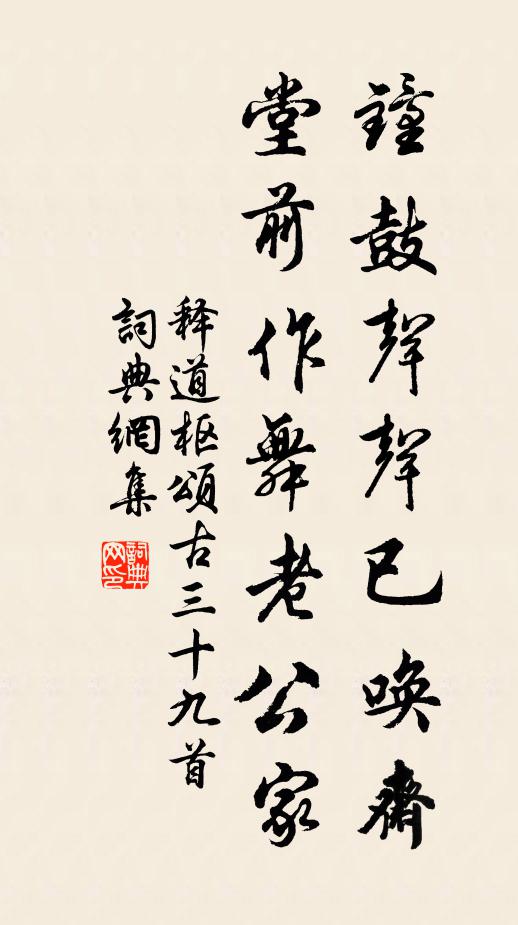 鐘鼓聲聲已喚齋
堂前作舞老公家
释道枢頌古三十九首
詞典網集
詞典网印